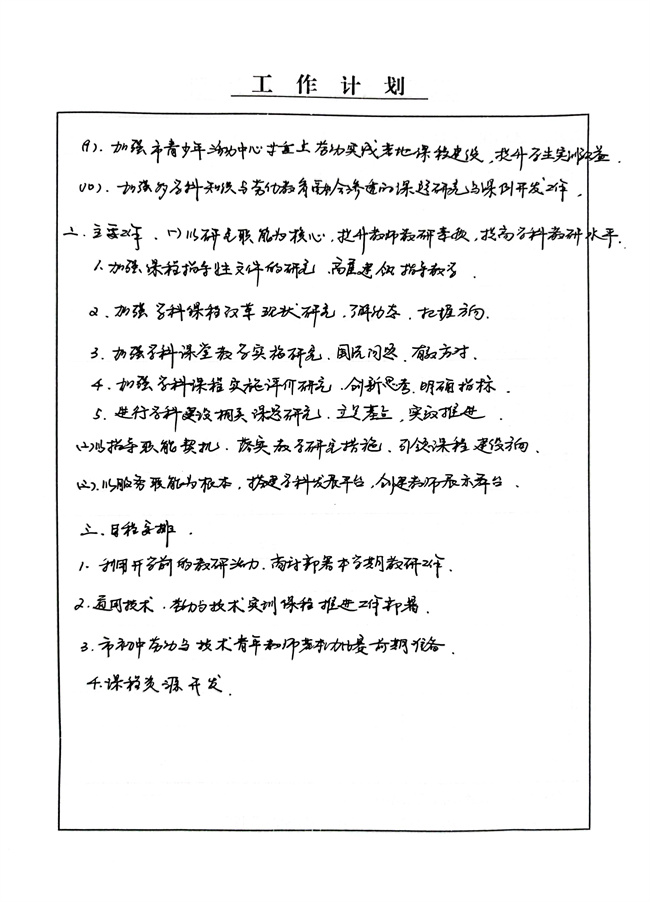 工作计划
(9). 加强市青少年活动中心 劳动实践基地课程建设,提升学生实训效益.
(10). 加强各学科知识与劳动教育融合渗透的课题研究与课例开发工作.
二. 主要工作. (一)以研究职能为核心,提升教师教研素质,提高学科教研水平.
1. 加强课程指导性文件的研究. 高度建议指导教学
2. 加强学科课程改革现状研究. 了解动态. 把握方向.
3. 加强学科课堂教学实施研究. 围绕问题. 有效方法.
4. 加强学科课程实施评价研究. 创新思考. 明确指标.
5. 进行学科建设相关课题研究. 立足基点,实效推进.
(二)以指导职能契机. 落实教学研究措施、引领课程建设方向.
(三).以服务职能为根本,搭建学科发展平台,创建教师展示舞台.
三. 日程安排.
1. 利用开学前的教研活动. 商讨部署本学期教研工作.
2. 通用技术. 劳动与技术实训课程推进工作部署.
3. 市初中劳动与技术青年教师基本功比赛前期准备.
4. 课程资源开发.